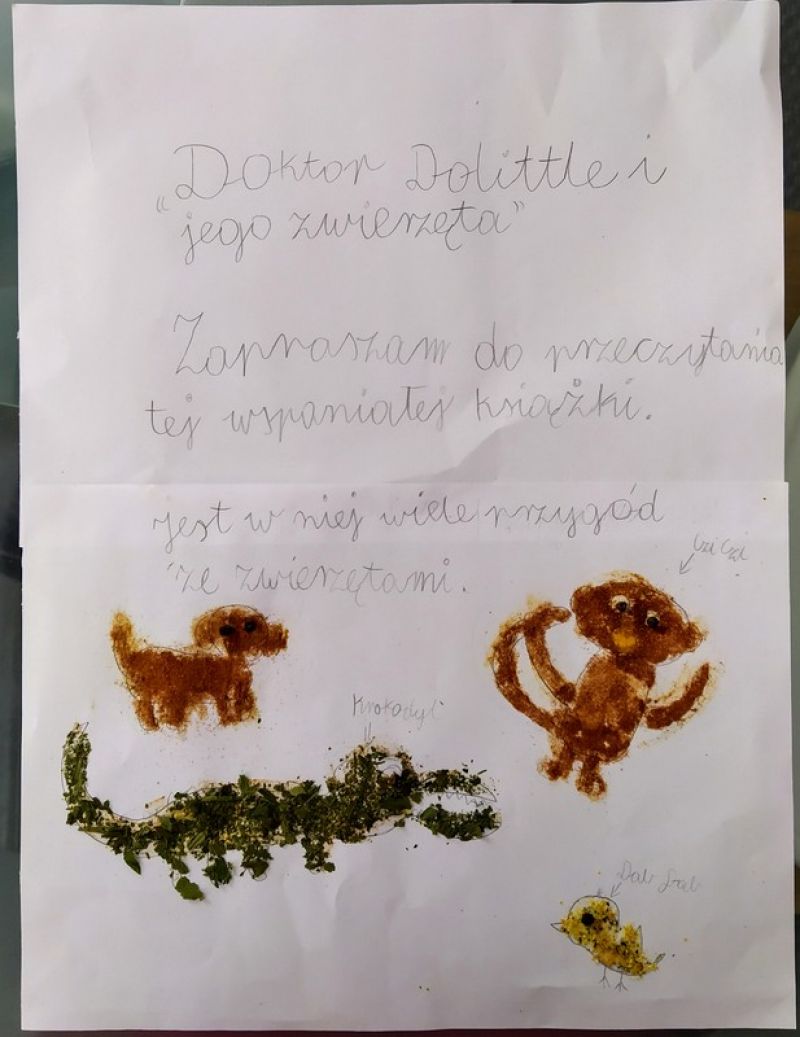 „Doktor Dolittle i
jego zwierzęta”
Zapraszam do przeczytania
tej wspaniałej książki.
jest w niej wiele przygód
ze zwierzętami.
Czi Czi
Krokodyl
Dab Dab